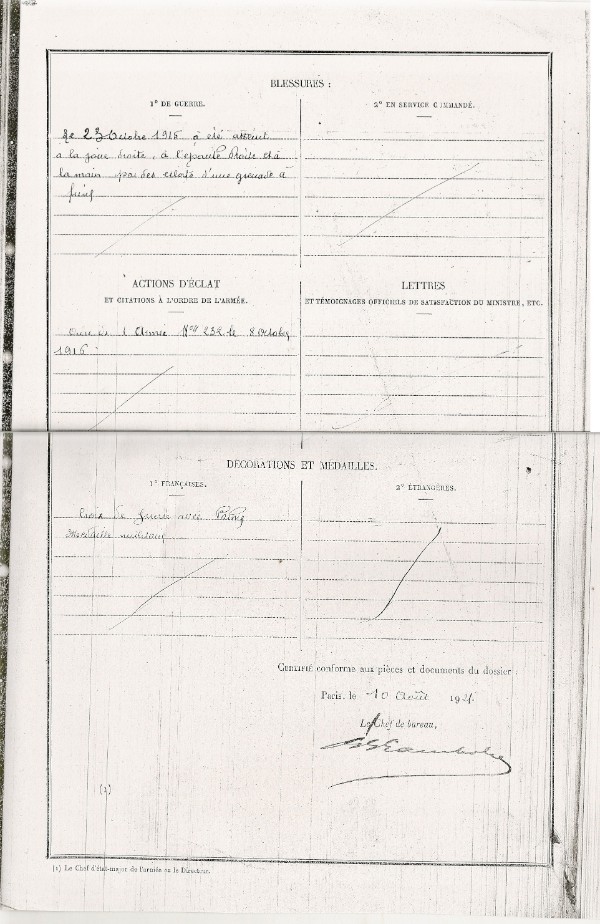 BLESSURES :
1° DE GUERRE.
2° EN SERVICE COMMANDÉ.
Le 23 Octobre 1916 a été atteint
a la joue droite, à l'épaule droite et à
la main par des eclats d'une grenade a
fusil
ACTIONS D'ÉCLAT
ET CITATIONS À L'ORDRE DE L'ARMÉE.
LETTRES
ET TÉMOIGNAGES OFFICIELS DE SATISFACTION DU MINISTRE, ETC.
Ordre de l'Armée N° 232 le 8 Octobre
1916
DÉCORATIONS ET MÉDAILLES.
1° FRANÇAISES.
2° ÉTRANGÈRES.
Croix de guerre avec Palme
Médaille militaire
CERTIFIÉ conforme aux pièces et documents du dossier :
Paris, le 10 Août 192
Le Chef de bureau,
(1)
(1) Le Chef d'état-major de l'armée ou le Directeur.